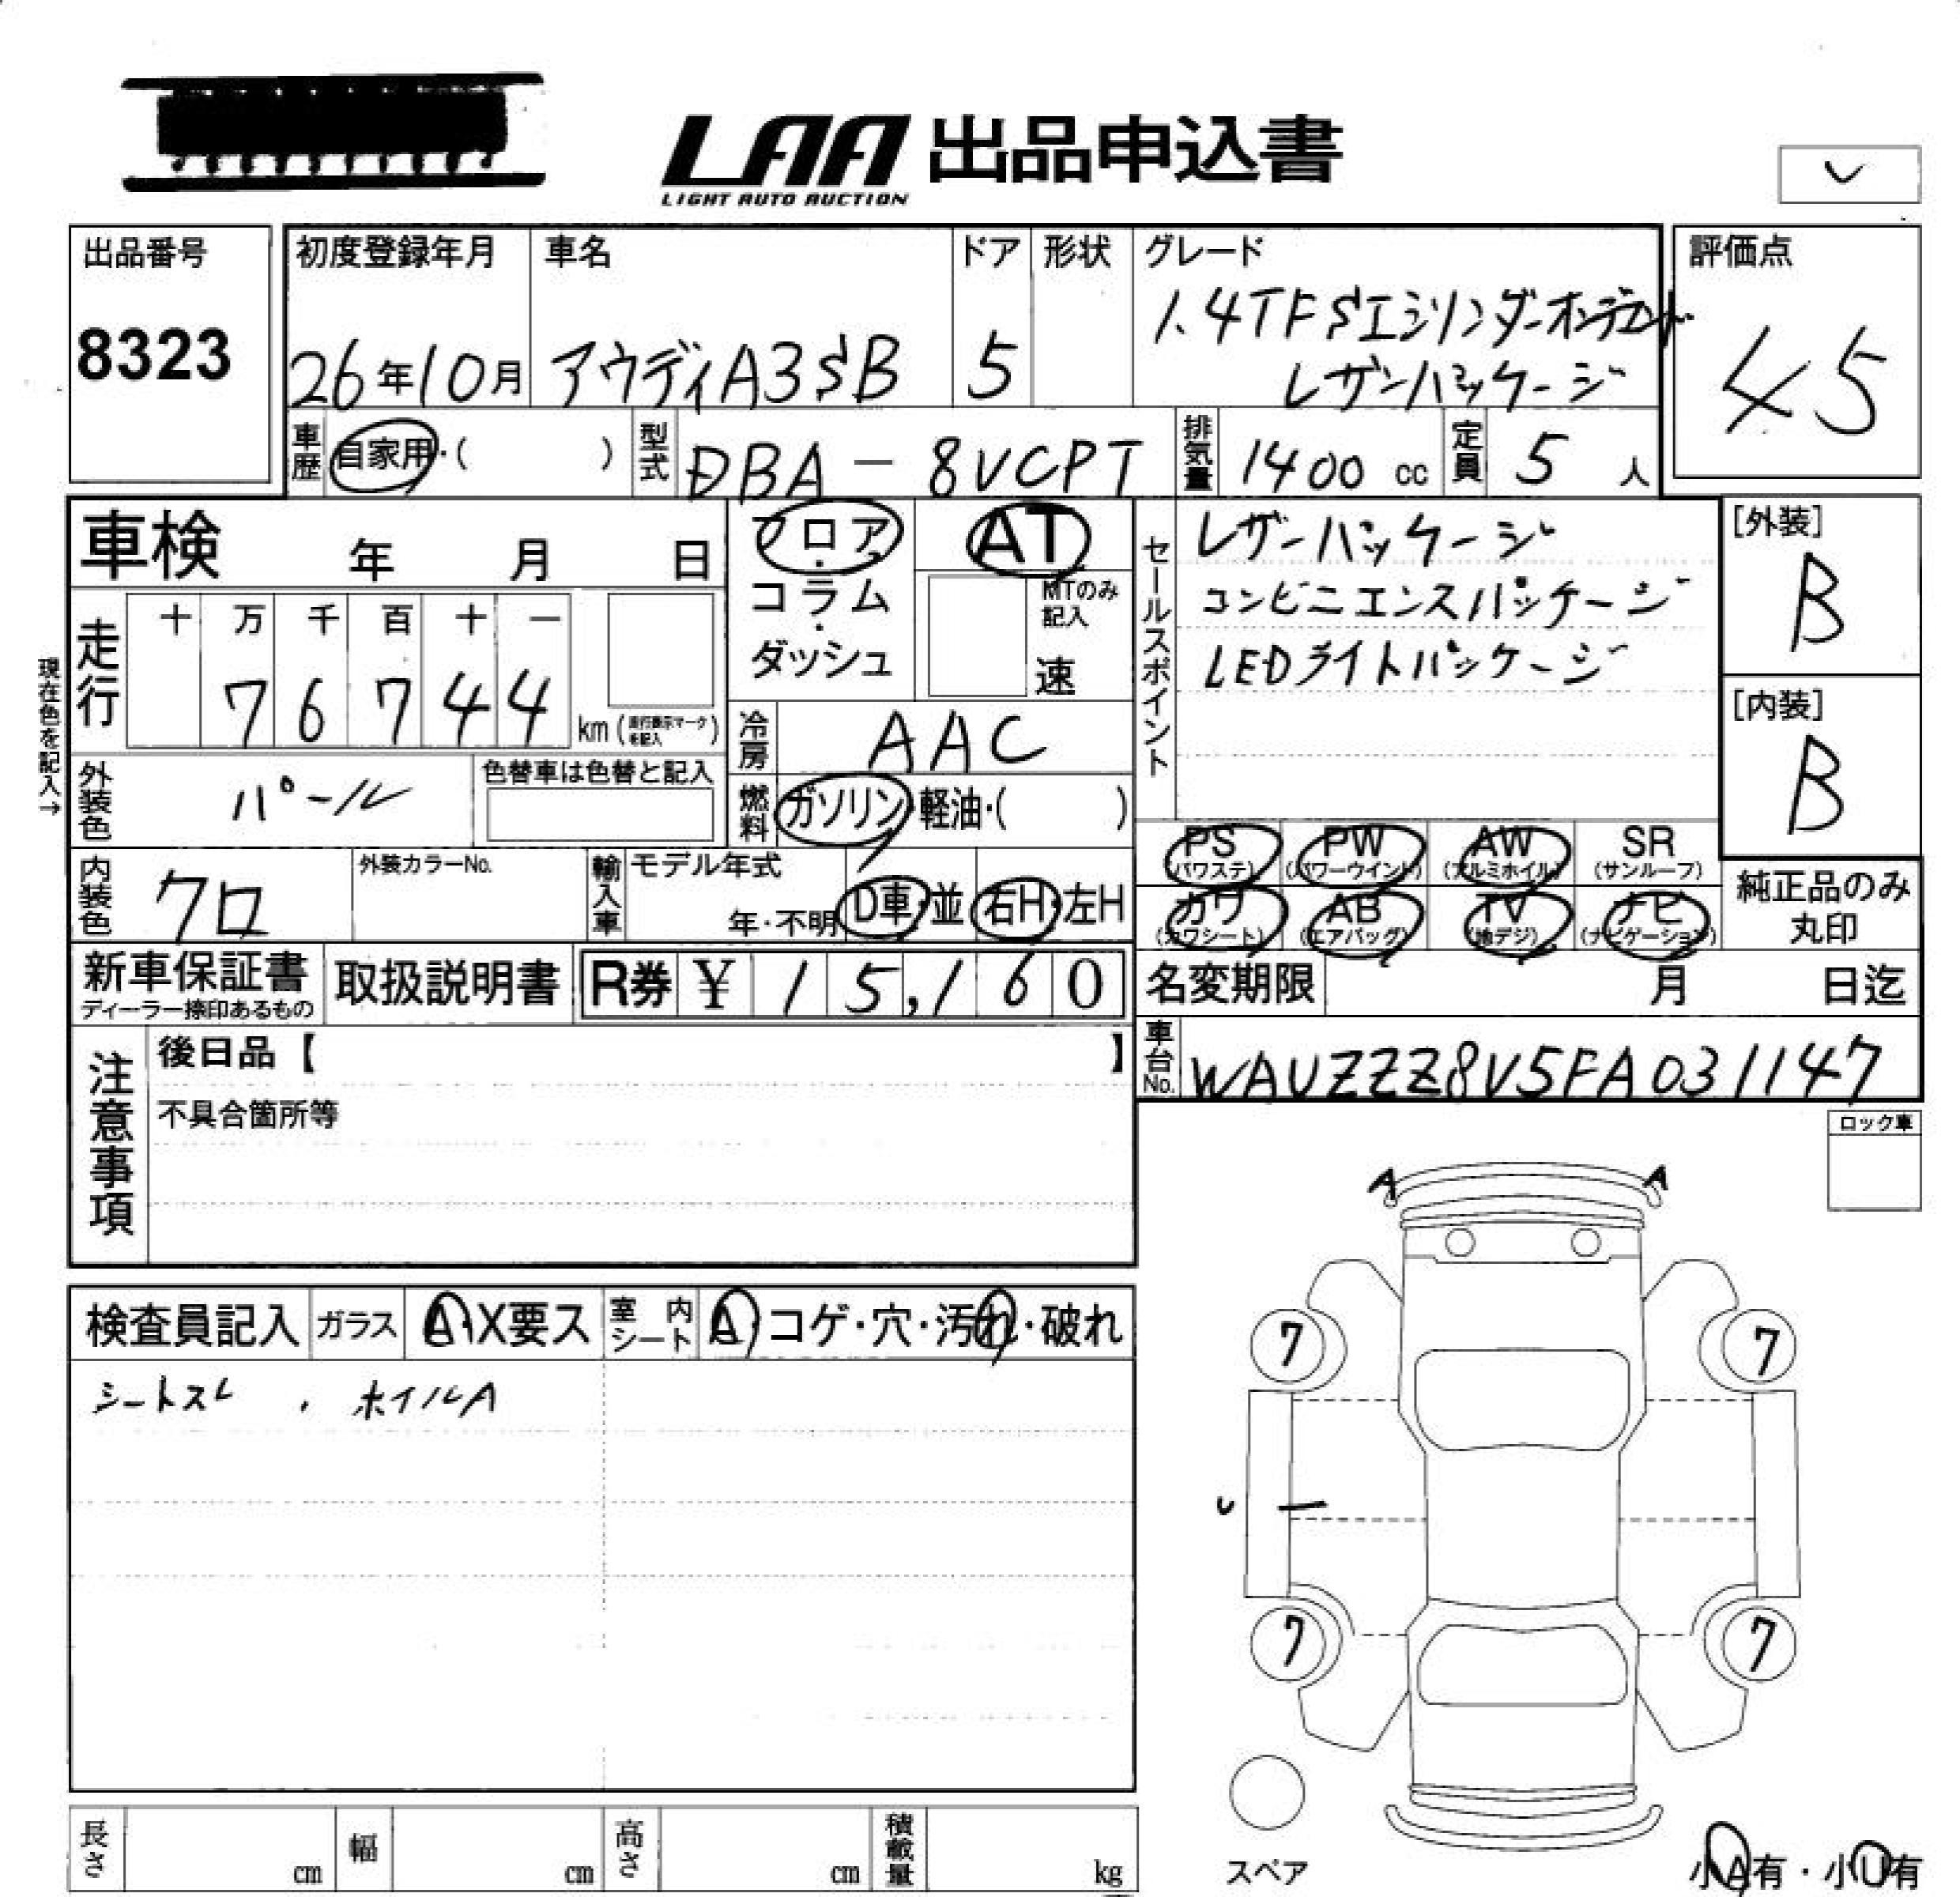 LAA 出品申込書
LIGHT AUTO AUCTION
出品番号
8323
初度登録年月
26年10月
車名
アウディA3SB
ドア
5
形状
グレード
1.4TFSIシリンダーオンデマンド
レザーパッケージ
評価点
45
車歴 自家用・( )
型式 DBA-8VCPT
排気量 1400 cc
定員 5 人
車検 年 月 日
フロア・コラム・ダッシュ
AT
MTのみ記入
速
セールスポイント
レザーパッケージ
コンビニエンスパッケージ
LEDライトパッケージ
[外装]
B
[内装]
B
現在色を記入→
走行
十 万 千 百 十 一
7 6 7 4 4 km (走行表示マークを記入)
冷房 AAC
外装色 パール
色替車は色替と記入
燃料 ガソリン・軽油・( )
内装色 クロ
外装カラーNo.
輸入車
モデル年式
年・不明
D車・並
右H・左H
PS (パワステ)
PW (パワーウインド)
AW (アルミホイル)
SR (サンルーフ)
カワ (カワシート)
AB (エアバッグ)
TV (地デジ)
ナビ (ナビゲーション)
純正品のみ丸印
新車保証書
ディーラー捺印あるもの
取扱説明書
R券 ¥ 15,160
名変期限 月 日迄
車台No. WAUZZZ8V5FA031147
注意事項
後日品【 】
不具合箇所等
ロック車
A A
検査員記入
ガラス A・X要ス
室内シート A・コゲ・穴・汚れ・破れ
シートスレ、ホイルA
7 7
7 7
スペア
長さ cm
幅 cm
高さ cm
積載量 kg
小A有・小U有